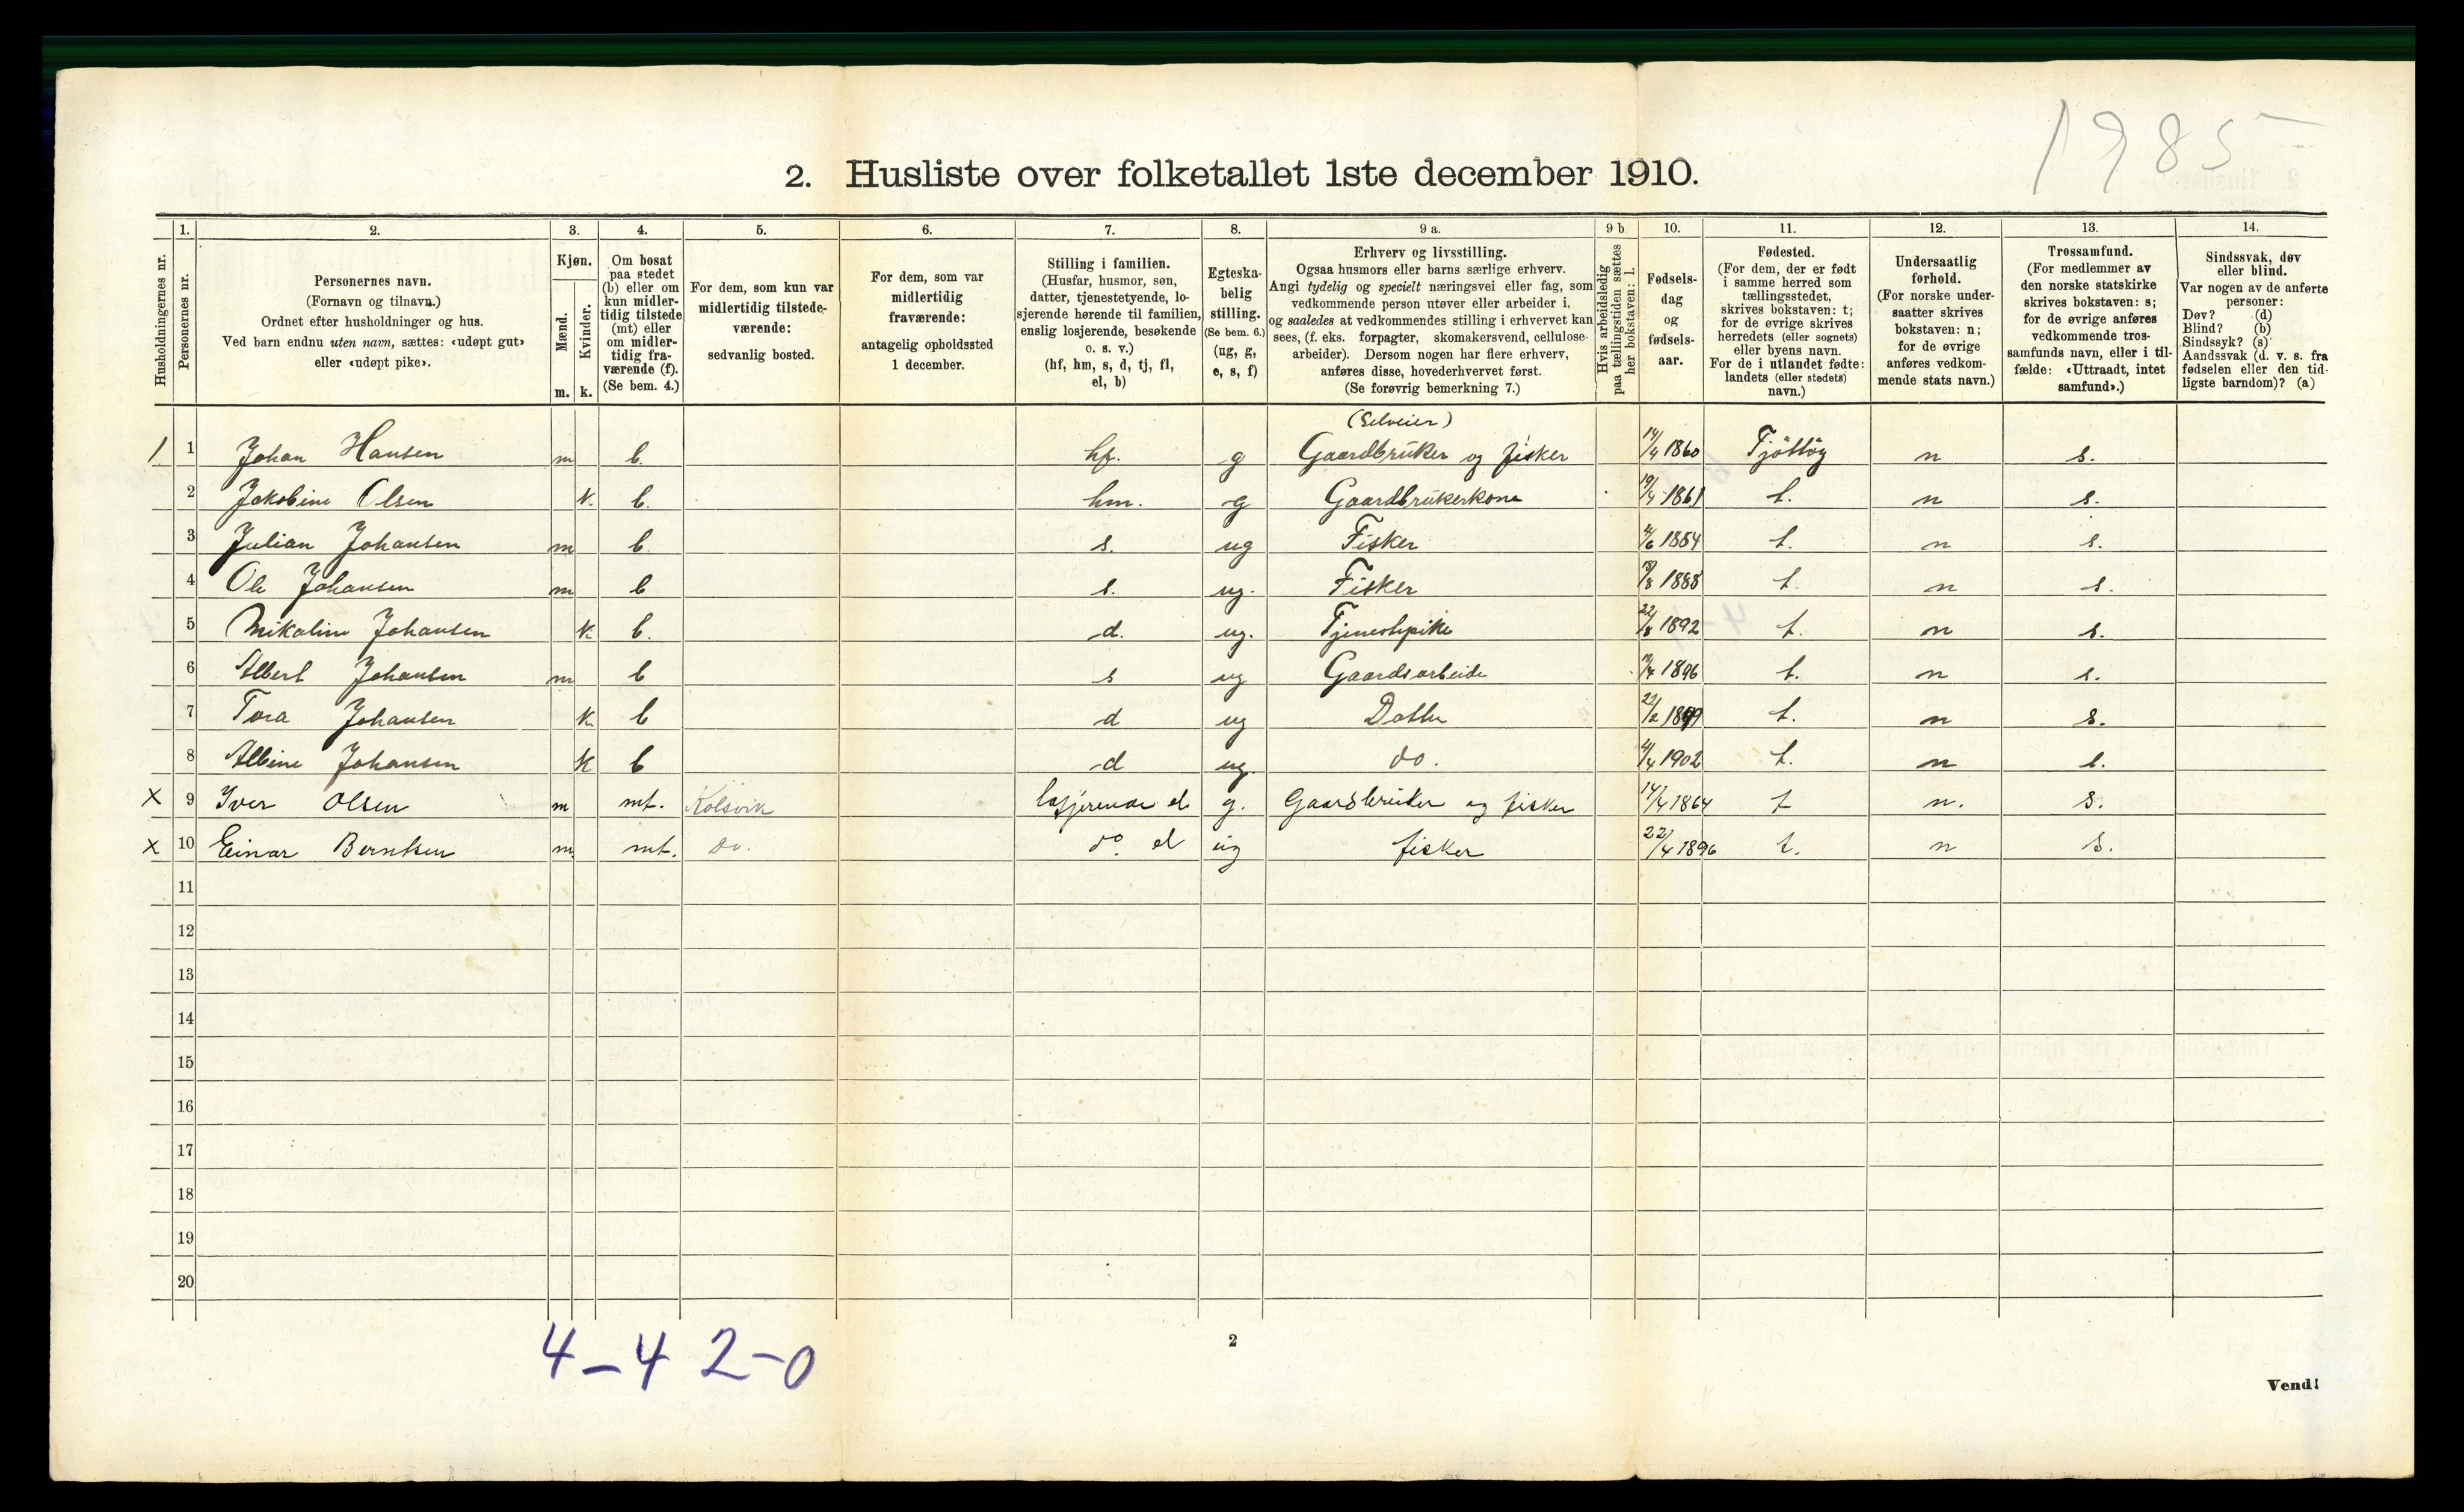 1985
2. Husliste over folketallet 1ste december 1910.
Husholdningernes nr.
1. Personernes nr.
2. Personernes navn. (Fornavn og tilnavn.) Ordnet efter husholdninger og hus. Ved barn endnu uten navn, sættes: «udøpt gut» eller «udøpt pike».
3. Kjøn. Mænd. m. Kvinder. k.
4. Om bosat paa stedet (b) eller om kun midlertidig tilstede (mt) eller om midlertidig fraværende (f). (Se bem. 4.)
5. For dem, som kun var midlertidig tilstedeværende: sedvanlig bosted.
6. For dem, som var midlertidig fraværende: antagelig opholdssted 1 december.
7. Stilling i familien. (Husfar, husmor, søn, datter, tjenestetyende, losjerende hørende til familien, enslig losjerende, besøkende o. s. v.) (hf, hm, s, d, tj, fl, el, b)
8. Egteskabelig stilling. (Se bem. 6.) (ug, g, e, s, f)
9 a. Erhverv og livsstilling. Ogsaa husmors eller barns særlige erhverv. Angi tydelig og specielt næringsvei eller fag, som vedkommende person utøver eller arbeider i, og saaledes at vedkommendes stilling i erhvervet kan sees, (f. eks. forpagter, skomakersvend, cellulosearbeider). Dersom nogen har flere erhverv, anføres disse, hovederhvervet først. (Se forøvrig bemerkning 7.)
9 b Hvis arbeidsledig paa tællingstiden sættes her bokstaven: l.
10. Fødselsdag og fødselsaar.
11. Fødested. (For dem, der er født i samme herred som tællingsstedet, skrives bokstaven: t; for de øvrige skrives herredets (eller sognets) eller byens navn. For de i utlandet fødte: landets (eller stedets) navn.)
12. Undersaatlig forhold. (For norske undersaatter skrives bokstaven: n; for de øvrige anføres vedkommende stats navn.)
13. Trossamfund. (For medlemmer av den norske statskirke skrives bokstaven: s; for de øvrige anføres vedkommende trossamfunds navn, eller i tilfælde: «Uttraadt, intet samfund».)
14. Sindssvak, døv eller blind. Var nogen av de anførte personer: Døv? (d) Blind? (b) Sindssyk? (s) Aandssvak (d. v. s. fra fødselen eller den tidligste barndom)? (a)
(Selveier)
1 1 Johan Hansen m b. hf. g Gaardbruker og fisker 14/4 1860 Tjöttög n s.
2 Jakobine Olsen k. b. hm. g Gaardbrukerkone 19/4 1861 t. n s.
3 Julian Johansen m b. s. ug Fisker 4/6 1884 t. n s.
4 Ole Johansen m b s. ug. Fisker 1888 t. n s.
5 Mikaline Johansen k b. d. ug. Tjenestpike 22/8 1892 t. n s.
6 Albert Johansen m b s ug Gaardsarbeide 1896 t. n s.
7 Tora Johansen k b d ug Datter 22/2 1899 t. n s.
8 Albine Johansen k b d ug. do. 4/4 1902 t. n s.
x 9 Iver Olsen m mt. Kolsvik losjerende el g. Gaardbruker og fisker 14/4 1864 t n. s.
x 10 Einar Berntsen m. mt. do. do el ug fisker 22/4 1896 t. n s.
11
12
13
14
15
16
17
18
19
20
4-4 2-0
2
Vend!